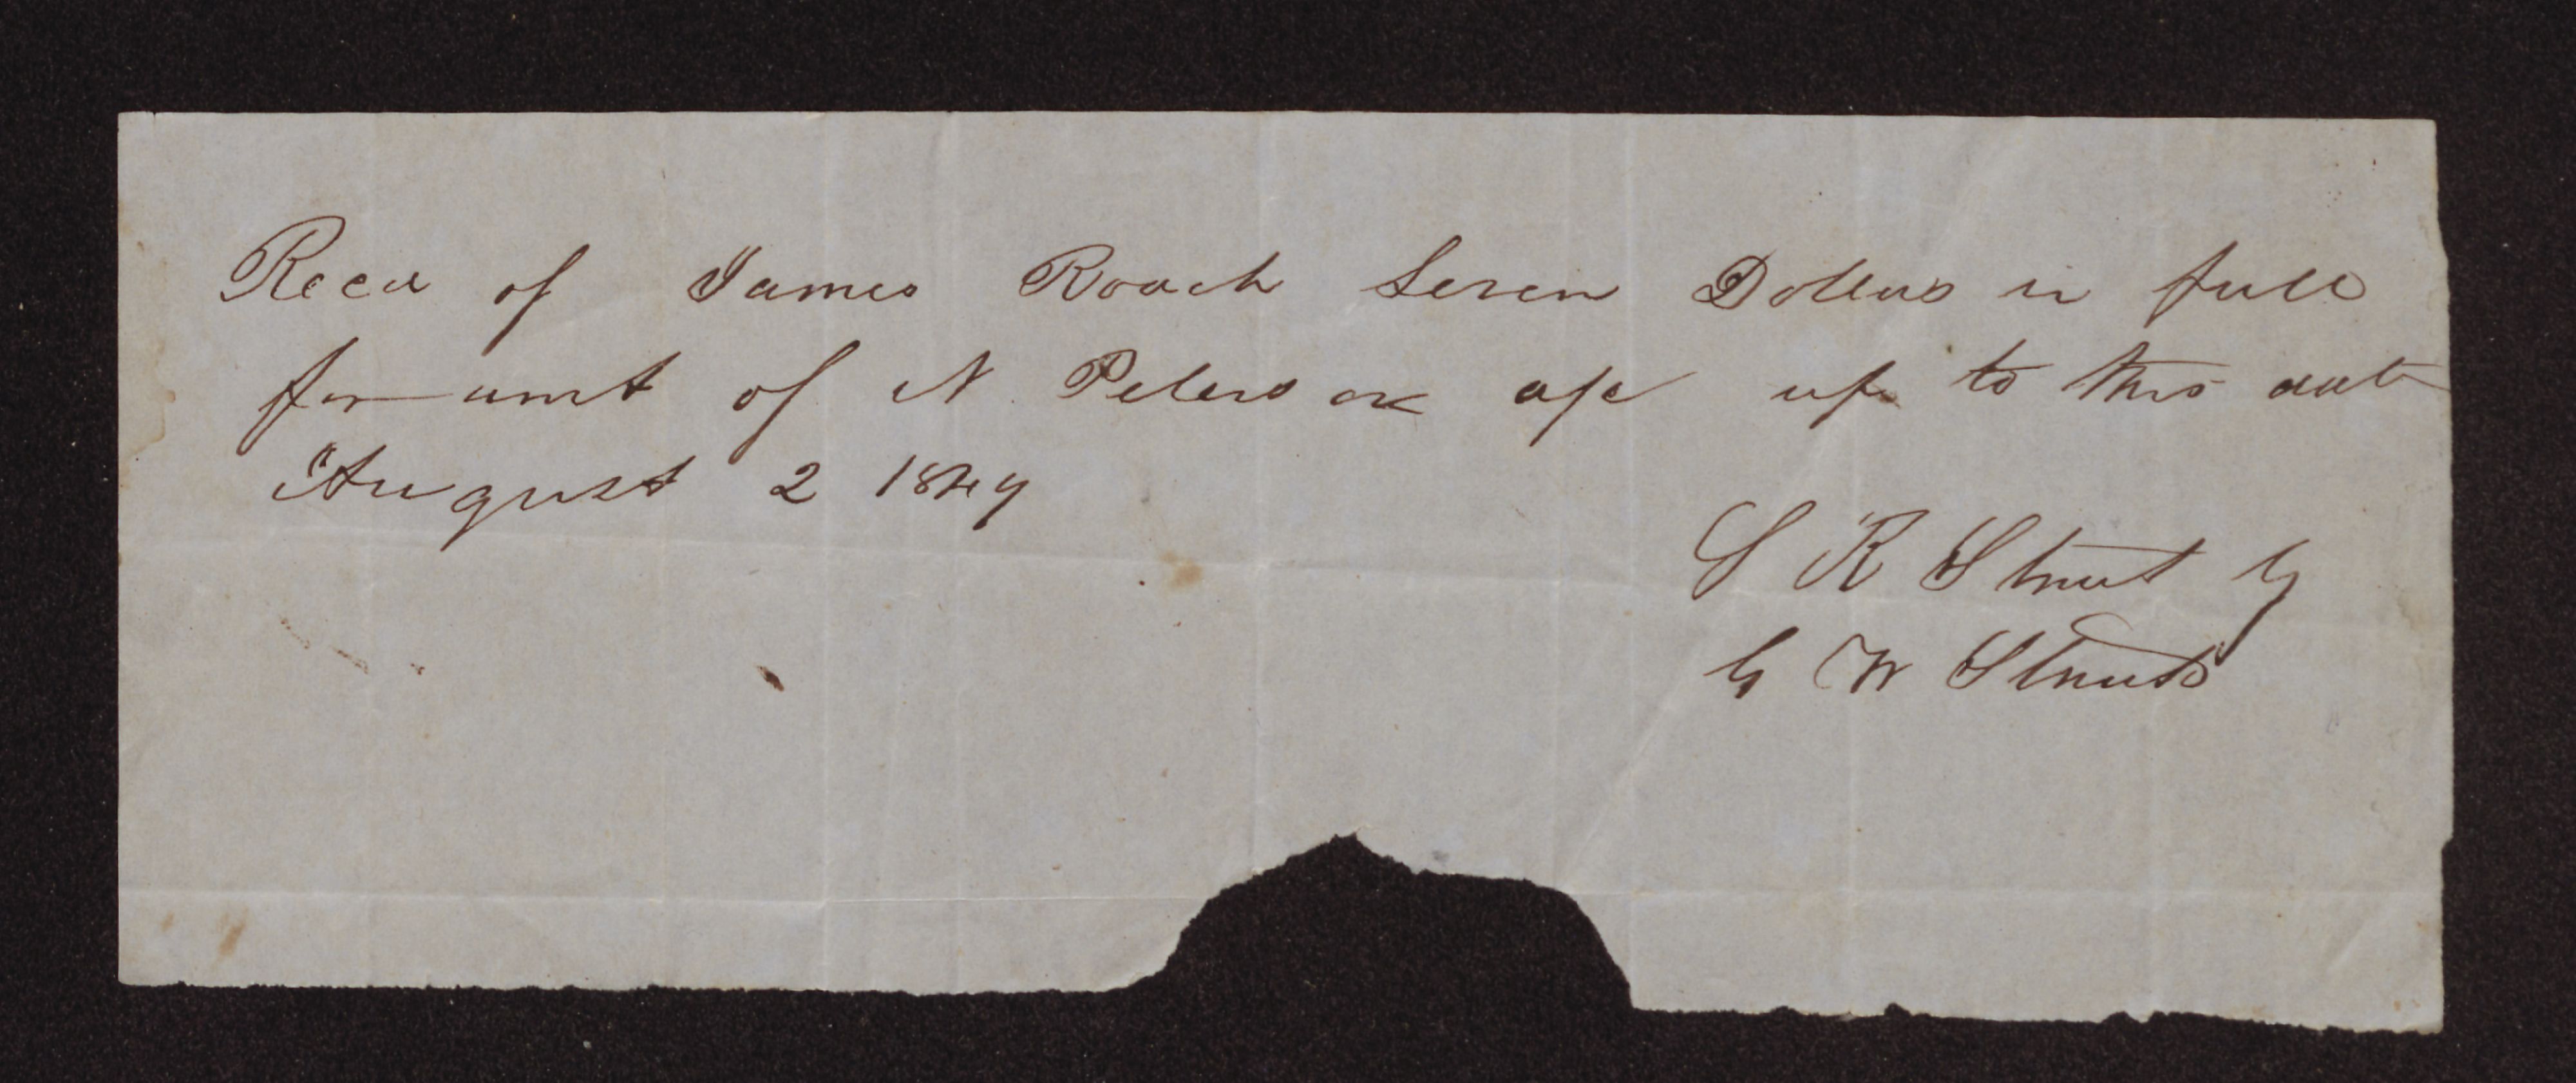 Recd of James Roach Seven Dollars in full
for amt of N Peters a/c up to this date
August 2 1849
S R Strut by
G W Strut